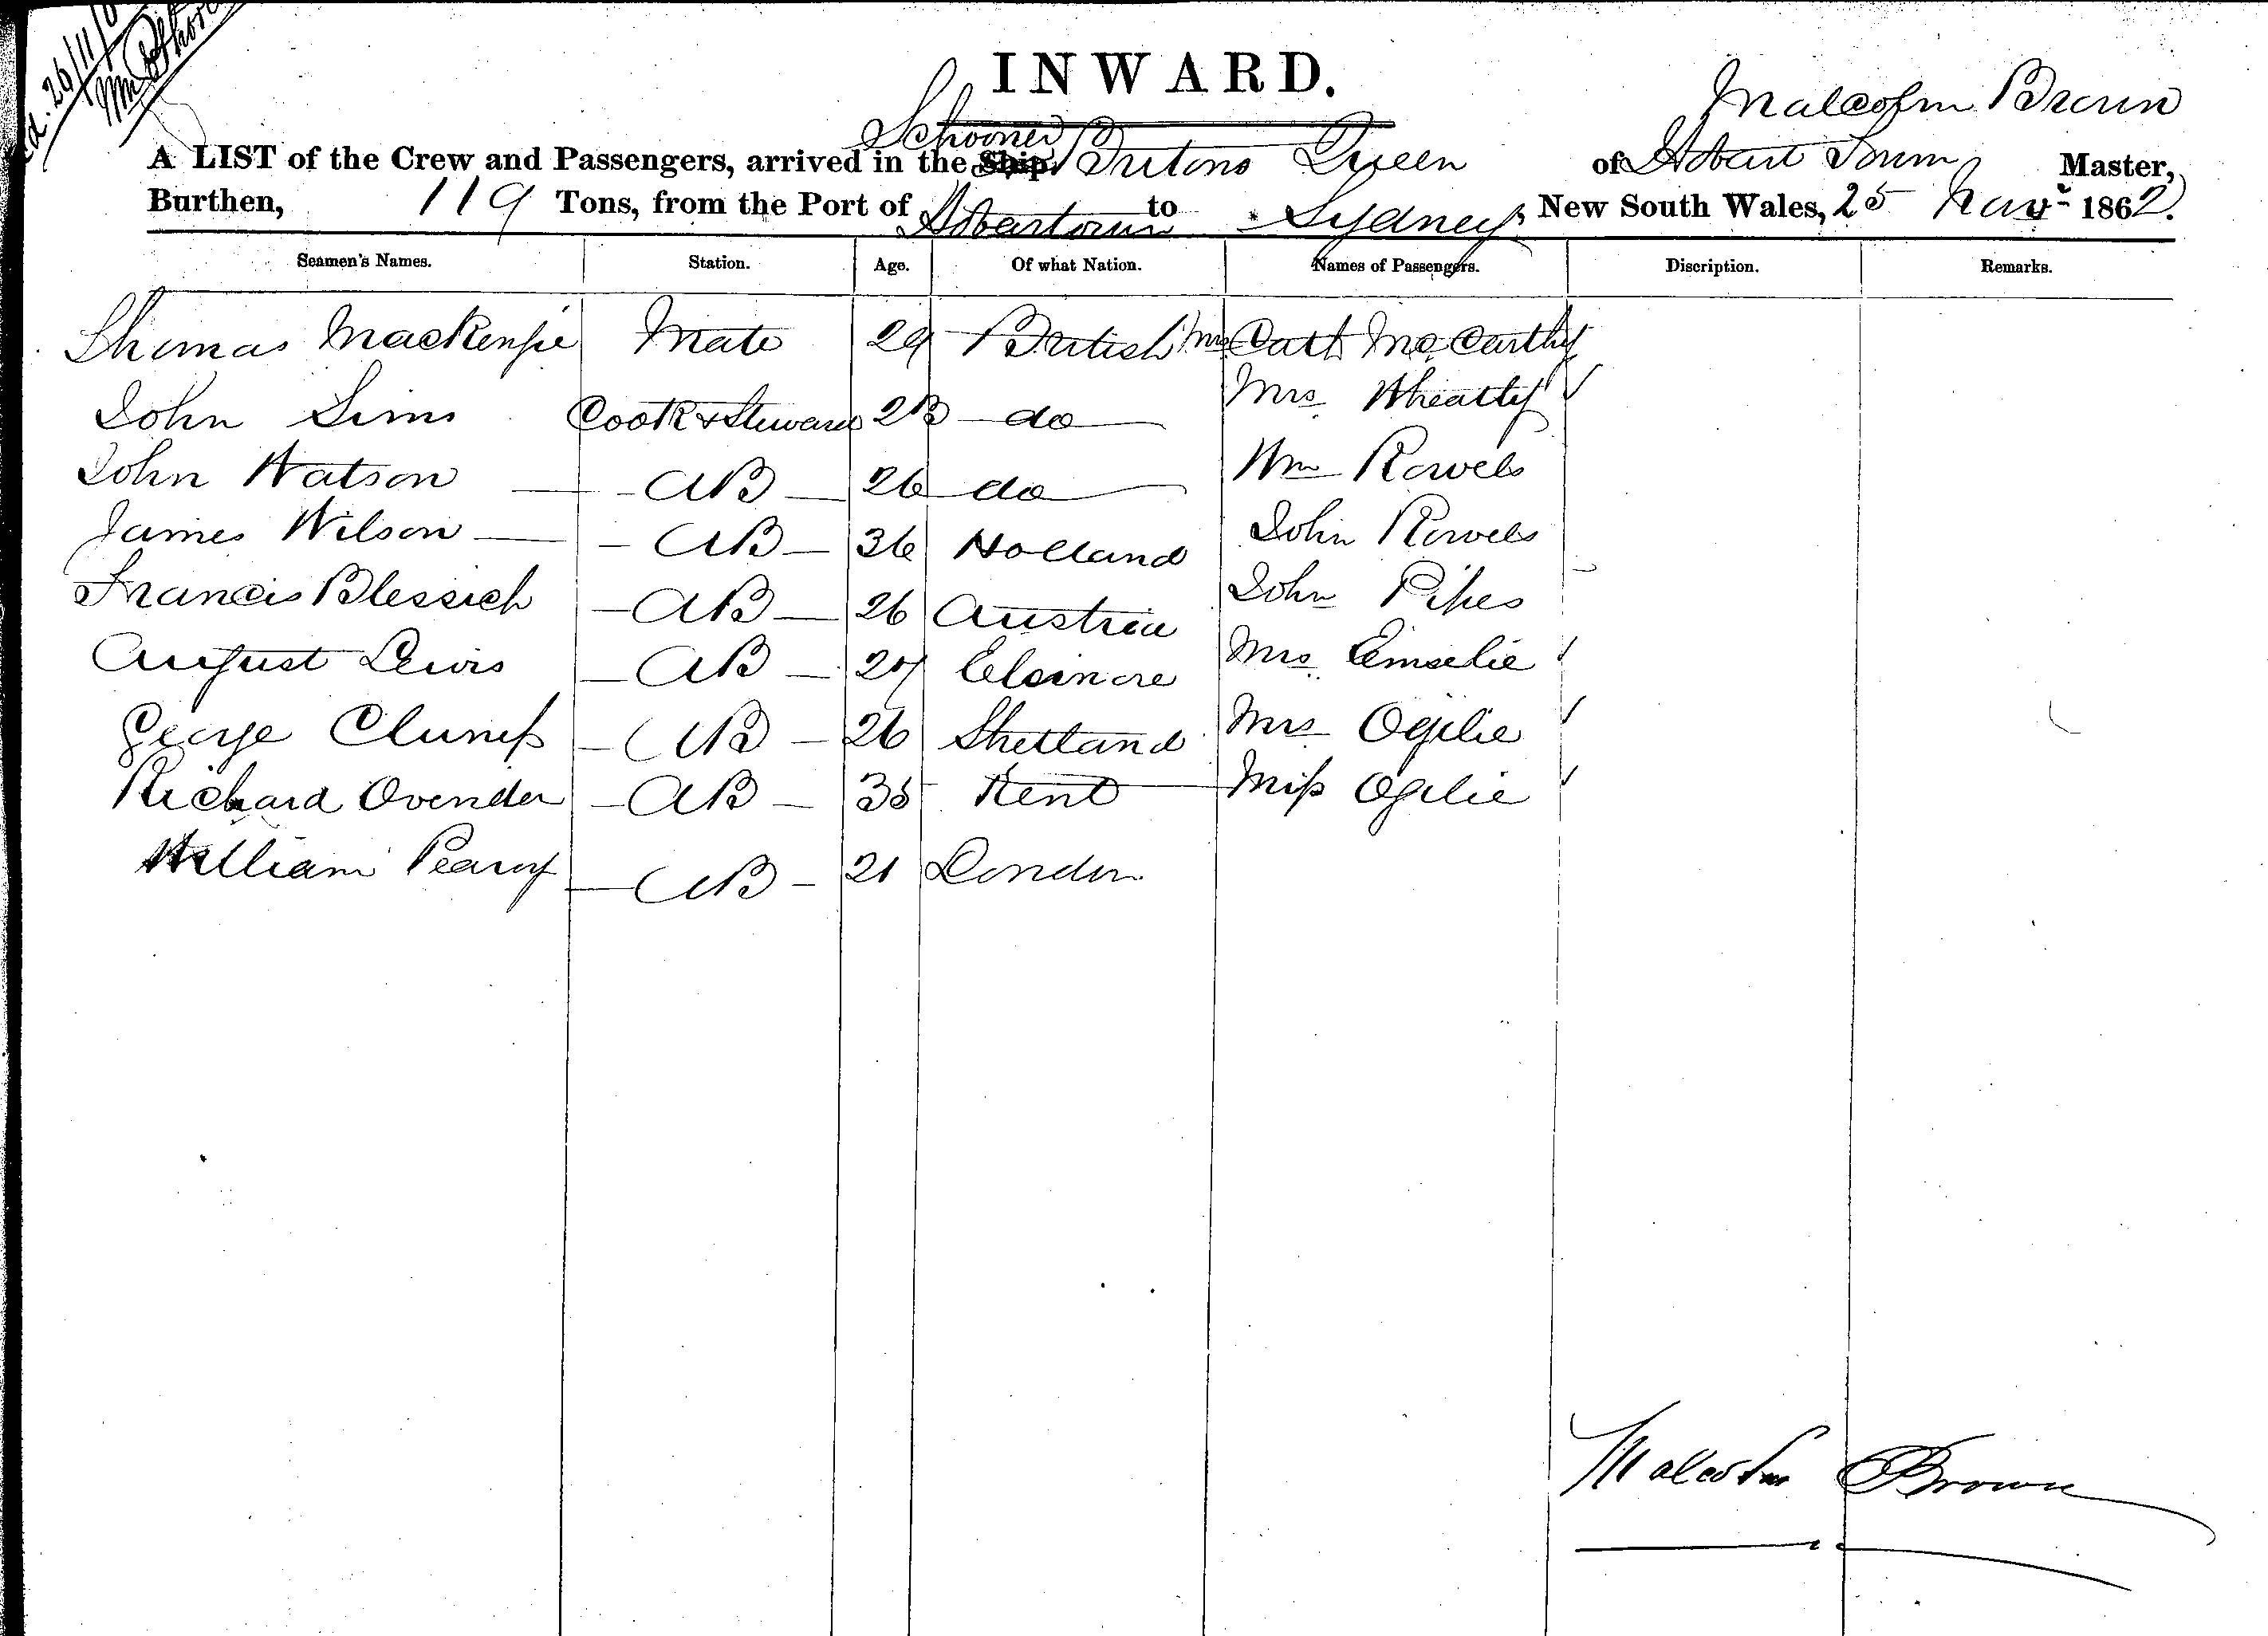 26/11/6
INWARD.
Malcolm Brown
Schooner
A LIST of the Crew and Passengers, arrived in the Ship Britons Queen of Hobart Town Master,
Burthen, 119 Tons, from the Port of Hobartown to Sydney, New South Wales, 25 Novr 1862.
Seamen's Names. Station. Age. Of what Nation. Names of Passengers. Discription. Remarks.
Thomas Mackenzie Mate 29 British Mrs Cath McCarthy
John Sims Cook & Steward 23 do Mrs Wheatly ✓
John Watson AB 26 do Wm Rowels
James Wilson AB 36 Holland John Rowels
Francis Blessich AB 26 Austria John Pikes
August Lewis AB 27 Elsinore Mrs Emselie ✓
George Cluness AB 26 Shetland Mrs Ogilie ✓
Richard Ovender AB 35 Kent Miss Ogilie ✓
William Pearcy AB 21 London
Malcolm Brown